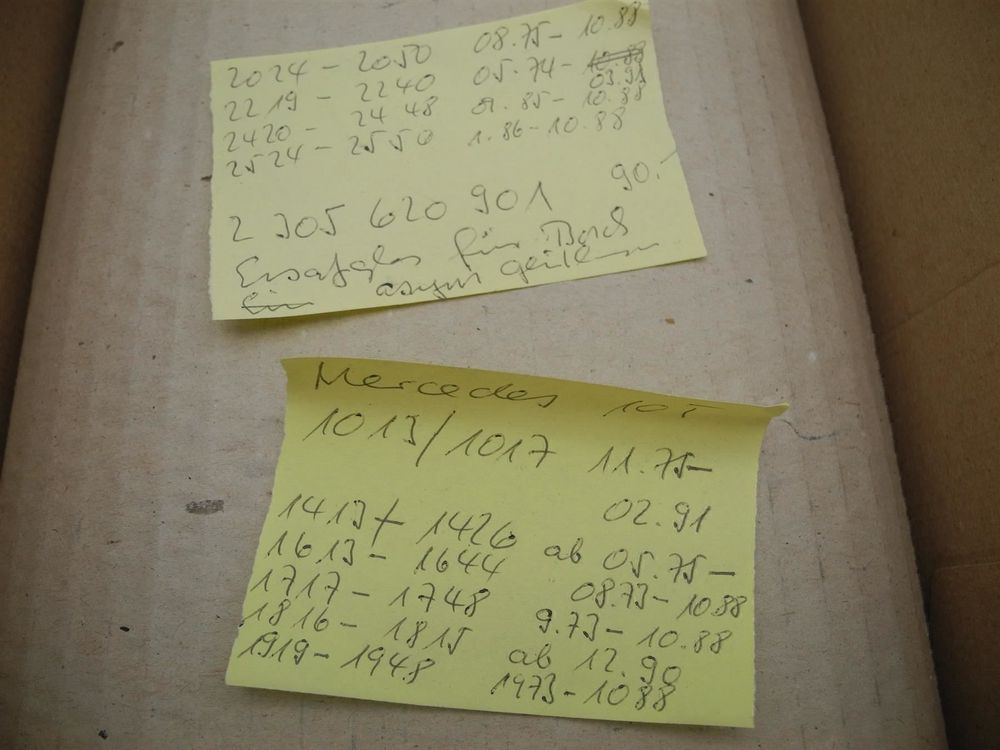 2024 - 2050 08.75 - 10.88
2219 - 2240 05.74 - 10.88 03.91
2420 - 2448 01.85 - 10.88
2524 - 2550 1.86 - 10.88
90.-
2 305 620 901
Ersatzglas für Bosch
asym
Mercedes 10T
1013/1017 11.75-
02.91
1413/- 1426 ab 05.75-
1613 - 1644 08.73 - 10.88
1717 - 1748 9.73 - 10.88
1816 - 1815 ab 12.90
1919 - 1948 1973 - 1088